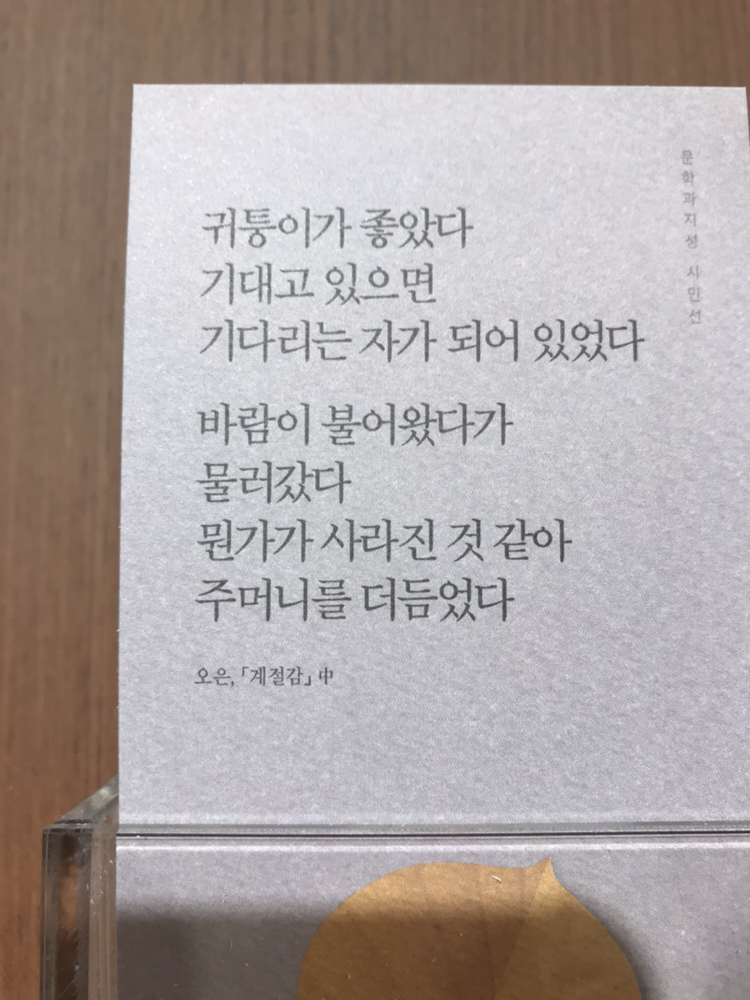 귀퉁이가 좋았다
기대고 있으면
기다리는 자가 되어 있었다
바람이 불어왔다가
물러갔다
뭔가가 사라진 것 같아
주머니를 더듬었다
오은,「계절감」中
문학과지성 시인선